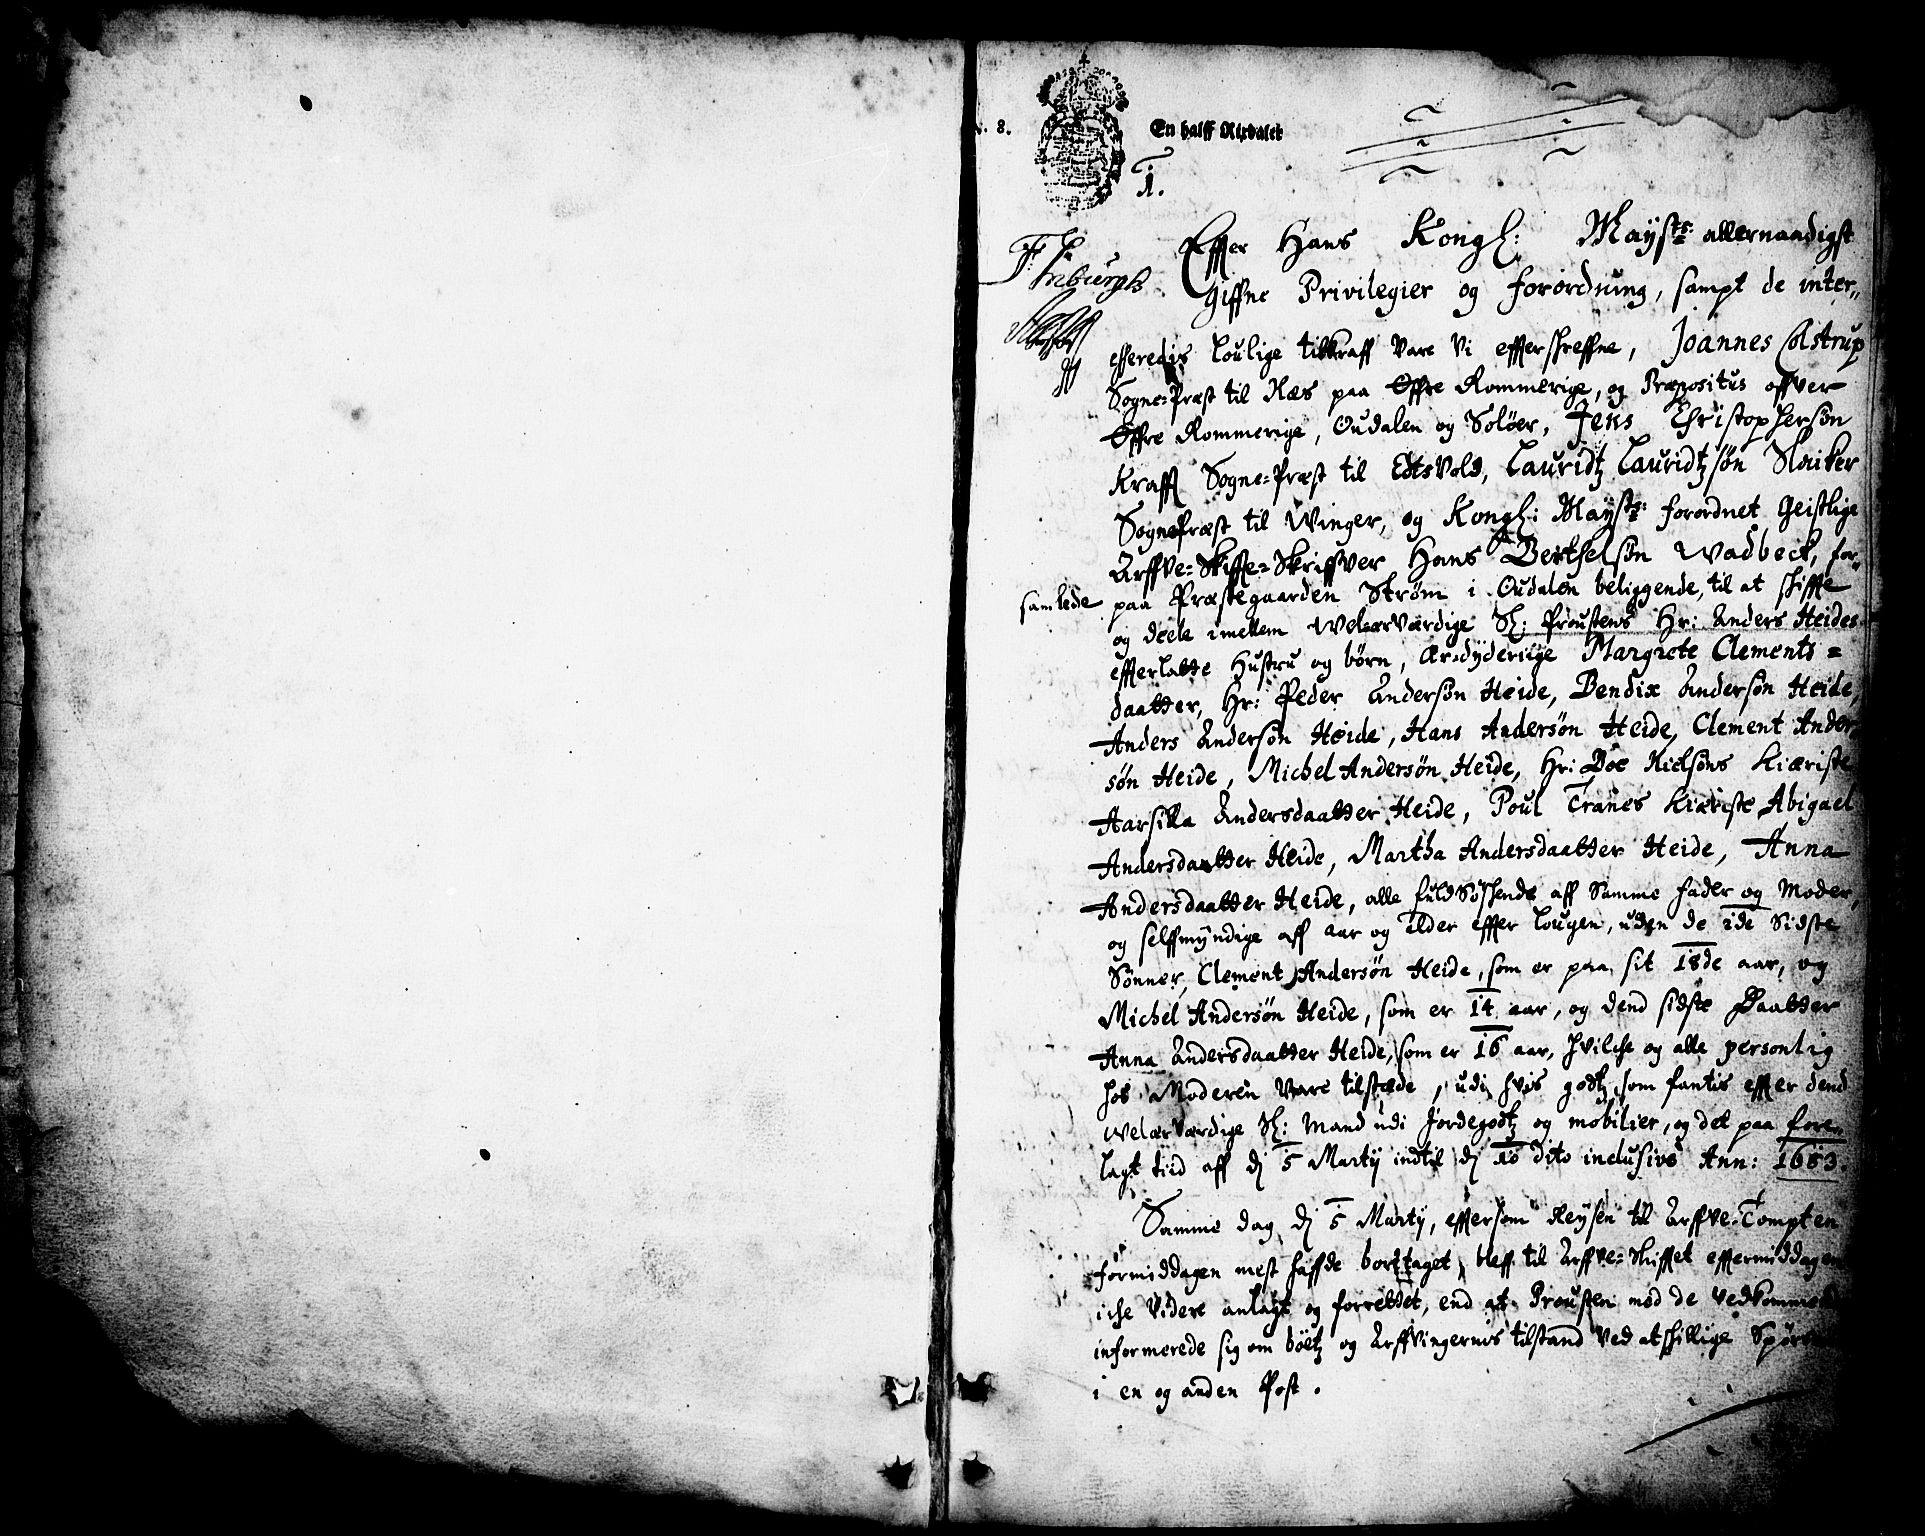 8. En halff Rixdaler
1.
Effter Hans Kongl: Mayts allernaadigst
Giffne Privilegier og forordning, sampt de inter„
esseredis loulige tilkraff vare vi effterschreffne, Joannes Colstrup
Sogne=Præst til Næs paa Øffre Rommerige, og Præpositus offver
Øffre Rommerige, Oudalen og Soløer, Jens Christophersøn
Krafft Sogne=Præst til Edtsvold, Lauridtz Lauridtzsøn
Sognepræst til Winger, og Kongl: Mayts: forordnet Geistlige
Arffve=Skiffte=Skriffver Hans Berthelsøn Wadbeck, for„
samlede paa Præstegaarden Strøm i Oudalen beliggende, til at skiffte
og deele imellem Welærværdige Sl: Proustens Hr: Anders Heides
effterlatte Hustru og børn, Æredyderiige Margrete Clements=
daatter, Hr: Peder Andersøn Heide, Bendix Andersøn Heide,
Anders Andersøn Heide, Hans Andersøn Heide, Clement Ander„
søn Heide, Michel Andersøn Heide, Hr: Boe Nielsøns Kiæriste
Andersdaatter Heide, Poul Tranes Kiæriste Abigael
Andersdaatter Heide, Martha Andersdaatter Heide, Anna
Andersdaatter Heide, alle fuldsøschende aff Samme fader og Moder,
og selffmyndige aff aar og alder effter lougen, uden de 2de Sidste
Sønner, Clement Andersøn Heide, som er paa sit 18de aar, og
Michel Andersøn Heide, som er 14 aar, og dend sidste Daatter
Anna Andersdaatter Heide, som er 16 aar, hvilche og alle personlig
hos Moderen vare tilstæde, udi hvis godtz som fantis effter dend
welærværdige Sl: Mand udi Jordegodtz og mobilier, og det paa fore„
lagt tiid aff dj 5 Martij indtil dj 10 dito inclusive Ann: 1683.
Samme dag dj 5 Martij, efftersom Reysen til Arffve=Tompten
formiddagen mest haffde borttaget, bleff til Arffve=Skifftet efftermiddagen
iche videre anlagt og forrettet, end at Prousten med de vedkommende
informerede sig om boetz og Arffvingernis tilstand ved atschillige
i en og anden Post.